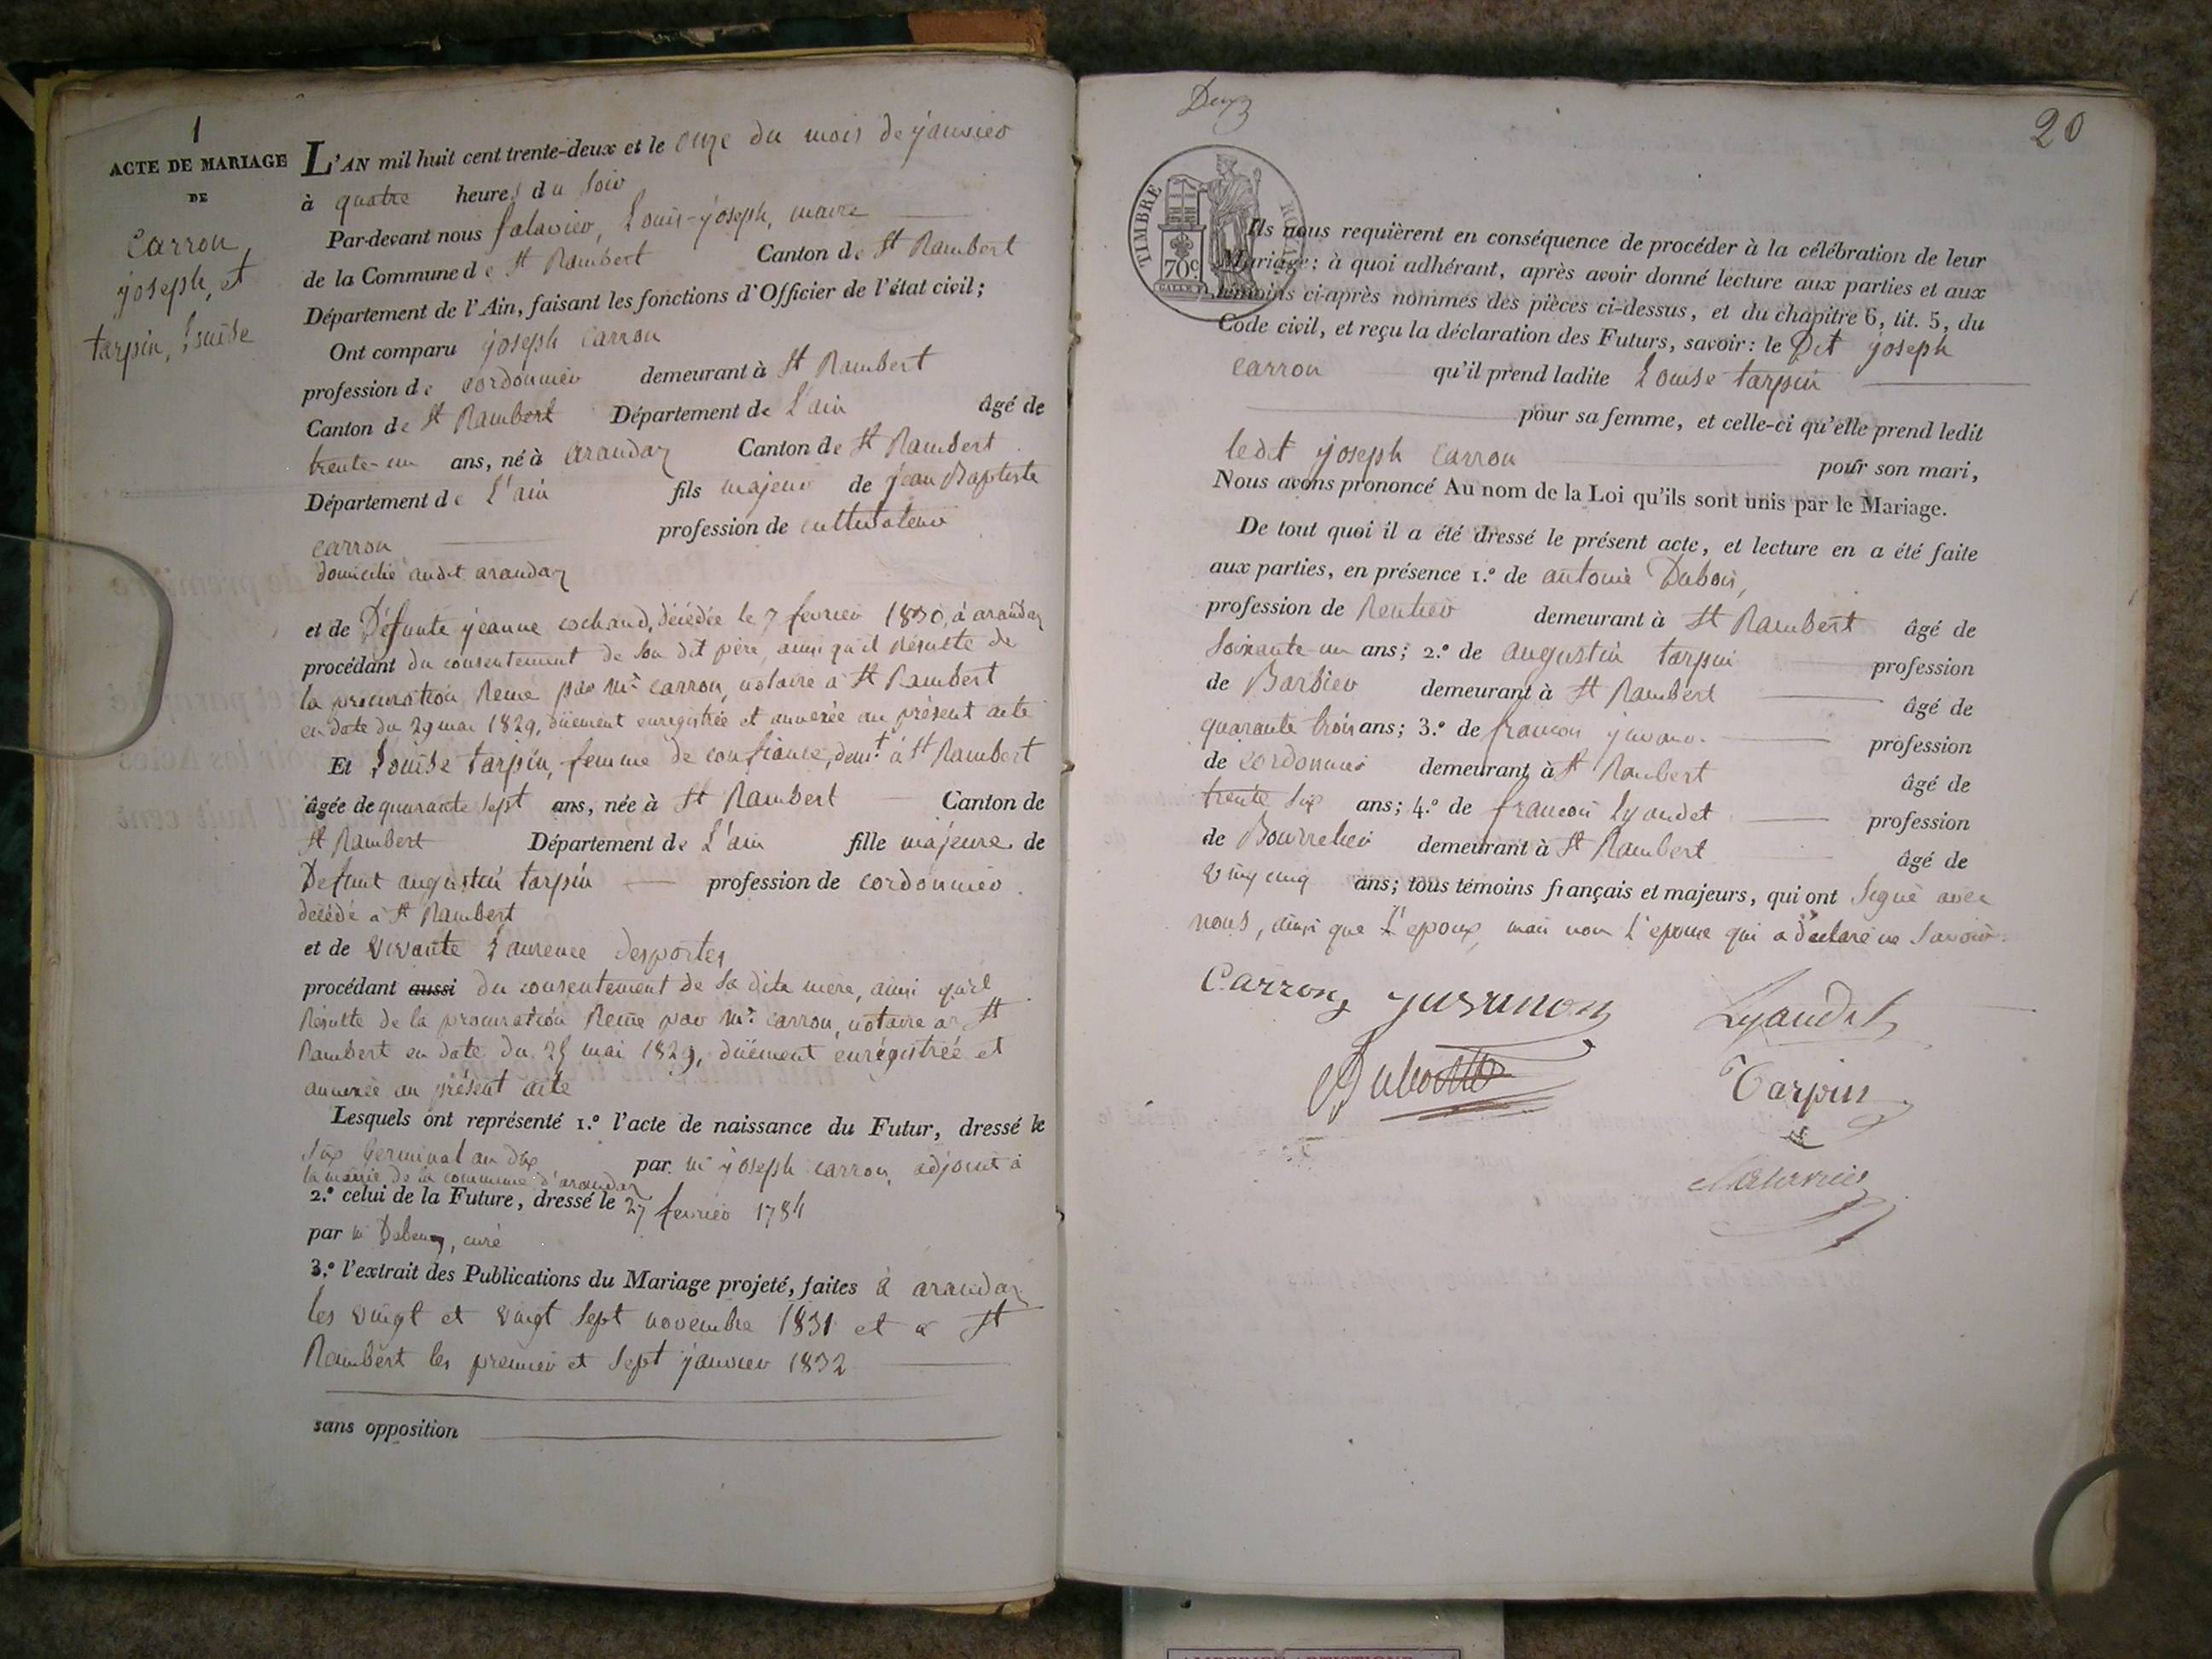 1
ACTE DE MARIAGE
DE
Carron
joseph, et
tarpin, Louise
L'AN mil huit cent trente-deux et le onze du mois de janvier
à quatre heures du soir
Par-devant nous falavier, Louis-joseph, maire
de la Commune de St Rambert Canton de St Rambert
Département de l'Ain, faisant les fonctions d'Officier de l'état civil;
Ont comparu joseph Carron
profession de cordonnier demeurant à St Rambert
Canton de St Rambert Département de L'ain âgé de
trente-un ans, né à arandaz Canton de St Rambert
Département de L'ain fils majeur de jean Baptiste
carron profession de cultivateur
domicilié audit arandaz
et de Défunte jeanne cochand, décédée le 7 fevrier 1830, à arandaz
procédant du consentement de son dit père, ainsi qu'il Résulte de
la procuration Reçue par Mr carron, notaire à St Rambert
en date du 29 mai 1829, dûement enregistrée et annexée au présent acte
Et Louise tarpin, femme de confiance, demt à St Rambert
âgée de quarante sept ans, née à St Rambert Canton de
St Rambert Département de L'ain fille majeure de
Defunt augustin tarpin profession de cordonnier
décédé à St Rambert
et de vivante Laurence Desportes
procédant aussi du consentement de sa dite mère, ainsi qu'il
Résulte de la procuration Reçue par Mr carron, notaire à St
Rambert en date du mai 1829, dûement enrégistrée et
annexée au présent acte
Lesquels ont représenté 1.º l'acte de naissance du Futur, dressé le
six Germinal an dix par mr joseph carron, adjoint à
la mairie de la commune d'arandaz
2.º celui de la Future, dressé le 27 fevrier 1784
par mr curé
3.º l'extrait des Publications du Mariage projeté, faites à arandaz
les vingt et vingt sept novembre 1831 et à St
Rambert les premier et sept janvier 1832
sans opposition
Deux
20
TIMBRE ROYAL
70c
Ils nous requièrent en conséquence de procéder à la célébration de leur
Mariage: à quoi adhérant, après avoir donné lecture aux parties et aux
témoins ci-après nommés des pièces ci-dessus, et du chapitre 6, tit. 5, du
Code civil, et reçu la déclaration des Futurs, savoir: le Dit joseph
carron qu'il prend ladite Louise tarpin
pour sa femme, et celle-ci qu'elle prend ledit
ledit joseph carron pour son mari,
Nous avons prononcé Au nom de la Loi qu'ils sont unis par le Mariage.
De tout quoi il a été dressé le présent acte, et lecture en a été faite
aux parties, en présence 1.º de antoine Dubois,
profession de Rentier demeurant à St Rambert âgé de
soixante-un ans; 2.º de augustin tarpin profession
de Barbier demeurant à St Rambert âgé de
quarante trois ans; 3.º de francois profession
de cordonnier demeurant à St Rambert âgé de
trente six ans; 4.º de francois Lyaudet profession
de Bourrelier demeurant à St Rambert âgé de
vingt cinq ans; tous témoins français et majeurs, qui ont signé avec
nous, ainsi que L'epoux, mais non L'epouse qui a déclaré ne savoir.
Carron Juvanon Lyaudet
Dubois Tarpin